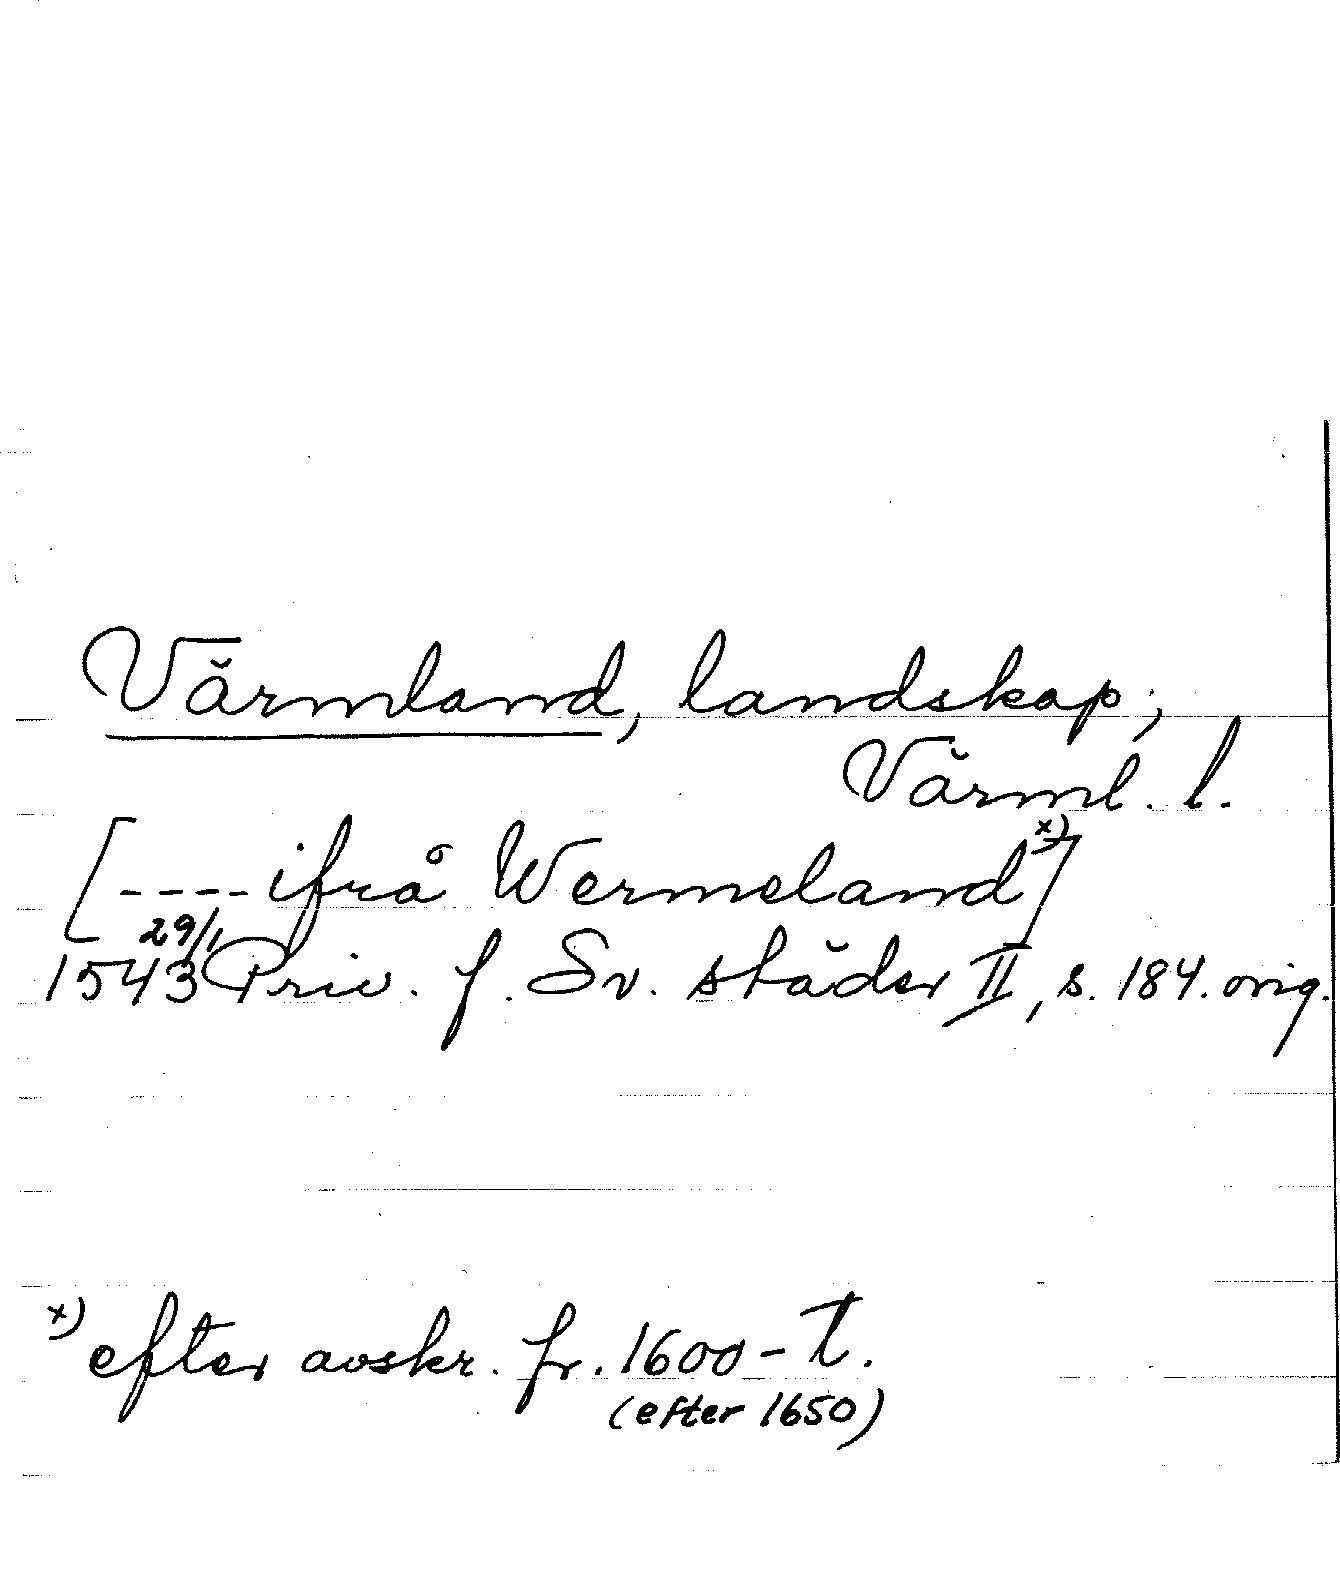 Värmland, landskap;
Värml. l.
[---- ifrå Wermeland x)]
29/1
1543 Priv. f. Sv. städer II, s. 184. orig.
x) efter avskr. fr. 1600-t.
(efter 1650)